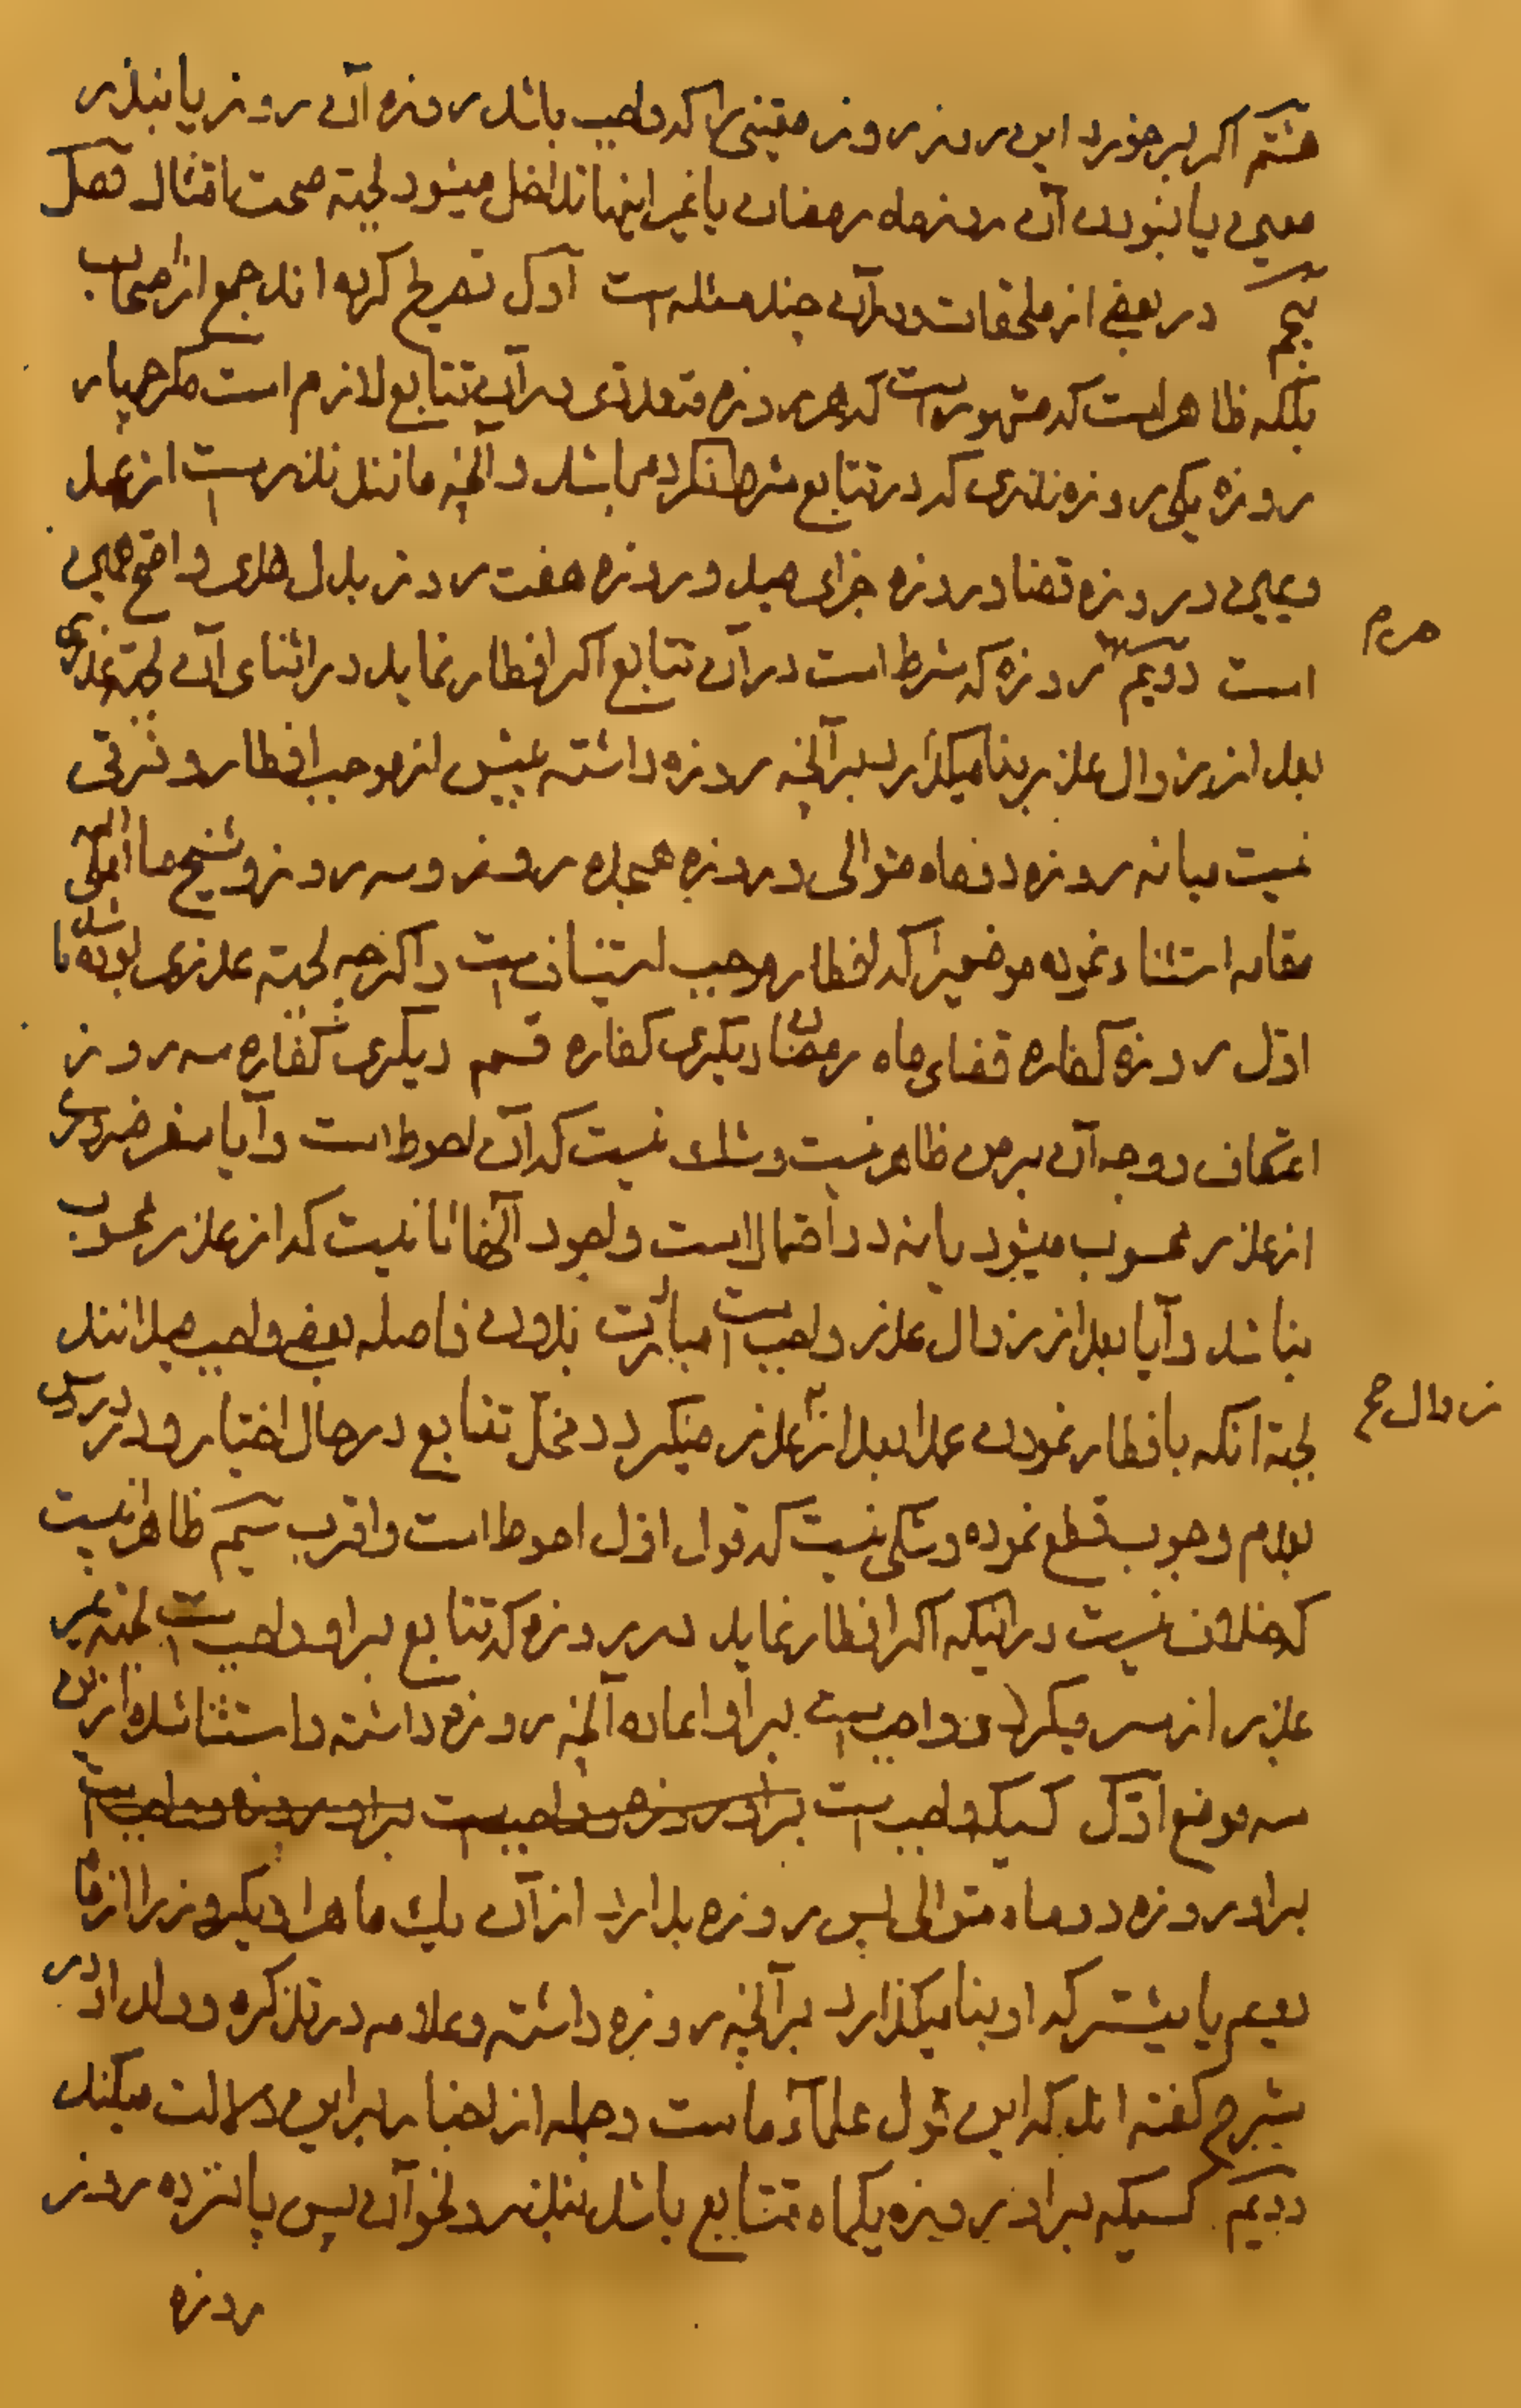 هشتم اکر برخورد این روز روز معینی را که واجب باشد روزه آن روز یا بنذر
معین یا نبودن آن روز ماه رمضان یا غیر اینها تداخل میشود لجهة صحت امتثال فصل
پنجم در بعضی از ملحقات و در آن چند مسئله است اول تصریح کرده اند جمع از اصحاب
بلکه ظاهر است که مشهور است که هر روزه متعددی در آن تتابع لازم است مکر چهار
روزه یکی روزه نذری که در تتابع شرط نکرده باشد و آنچه مانند نذر است از عهد
و یمین و روزه قضا و روزه جزای صید و روزه هفت روز بدل هدی و اصح همین
است دویم هر روزه که شرط است در آن تتابع اکر افطار نماید در اثنای آن لجهة عذری
بعد از زوال عذر بنا میکذارد بر آنچه روزه داشته پیش از موجب افطار و فرقی
نیست میانه روزه دو ماه متوالی و روزه هیجده روز و سه روز و شیخ ما
مقامه استثناء نموده موضعیرا که افطار موجب استیناف است و اکرچه لجهة عذری بوده باشد
اول روزه کفاره قضای ماه رمضان دیکری کفاره قسم دیکری کفاره سه روز
اعتکاف و وجه آن بر من ظاهر نیست و شک نیست که آن احوط است و آیا سفر ضروری
از عذر محسوب میشود یا نه دو احتمال است و بعود آنها نیست که از عذر محسوب
نباشد و آیا بعد از زوال عذر واجب است مبادرت بدون فاصله بعضی واجب میدانند
لجهة آنکه بافطار نمودن عمدا بعد از عذر میکردد مخل تتابع در حال اختیار و در دروس
بعدم وجوب قطع نموده و شکی نیست که قول اول احوط است و اقرب سیم ظاهر اینست
که خلاف نیست در اینکه اکر افطار نماید در روزه که تتابع بر او واجب است لجهة غیر
عذر از سر میکیرد و واجب است بر او اعاده آنچه روزه داشته و استثنا شده ازین
سه موضع اول کسیکه واجب است
بر او روزه دو ماه متوالی پس روزه بدارد از آن یک ماه را و یکروز را از ماه
دویم یا بیشتر که او بنا میکذارد بر آنچه روزه داشته و علامه در تذکره و ولد او در
شرح کفته اند که این قول علماء ماست و جمله از اخبار بر این دلالت میکند
دویم کسیکه بر او روزه یکماه متتابع باشد بنذر و نحو آن پس پانزده روز
روزه
هرم
زوال صح